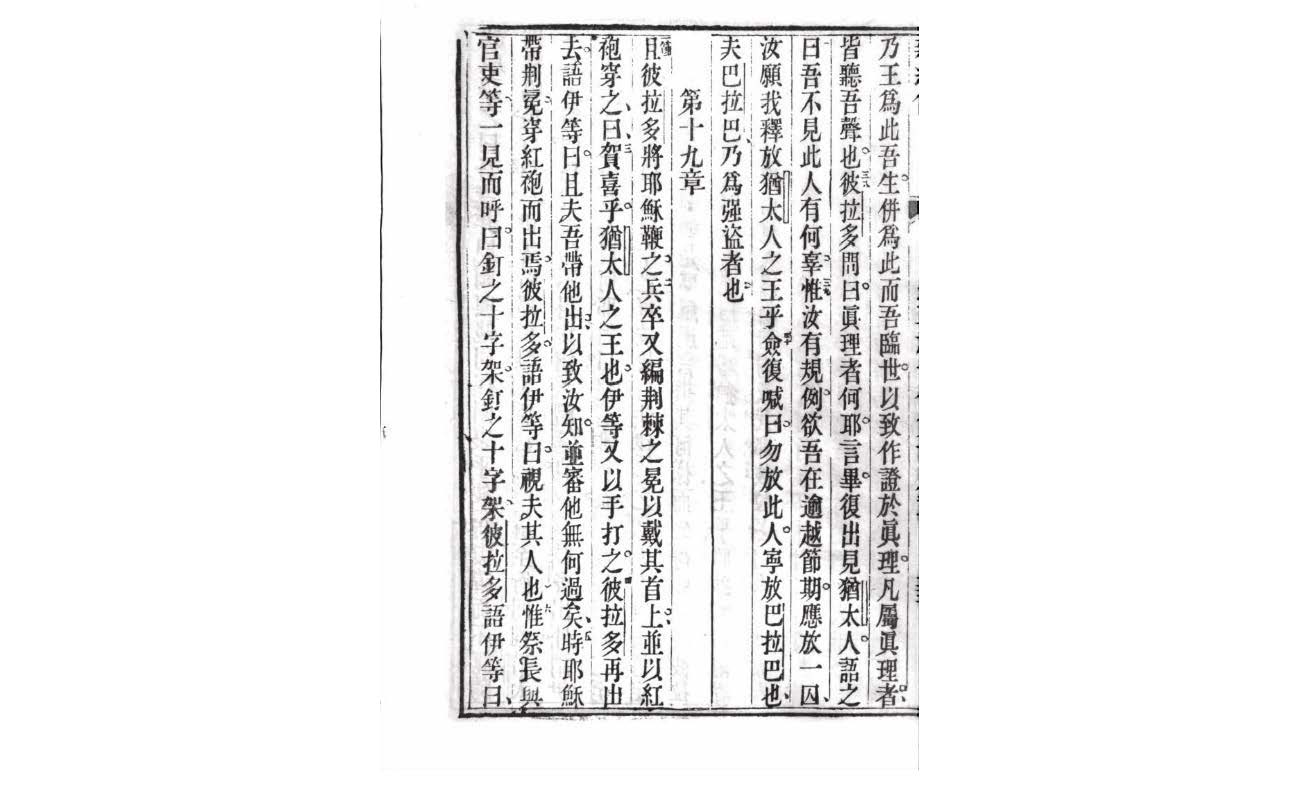 乃王爲此吾生。併爲此而吾臨世。以致作證於眞理。凡屬眞理者。
皆聽吾聲也。彼拉多問曰。眞理者何耶。言畢。復出見猶太人。語之
曰吾不見此人有何辜。惟汝有規例。欲吾在逾越節期。應放一囚、
汝願我釋放猶太人之王乎僉復喊曰。勿放此人。寧放巴拉巴也、
夫巴拉巴、乃爲强盜者也
第十九章
且彼拉多將耶穌鞭之。兵卒又編荆棘之冕以戴其首上。並以紅
袍穿之、曰、賀喜乎。猶太人之王也。伊等又以手打之。彼拉多再出
去。語伊等曰。且夫吾帶他出。以致汝知。並審他無何過矣、時耶穌
帶荆冕。穿紅袍而出焉。彼拉多。語伊等曰。視夫其人也惟祭長與
官吏等、一見而呼曰。釘之十字架。釘之十字架、彼拉多語伊等曰、